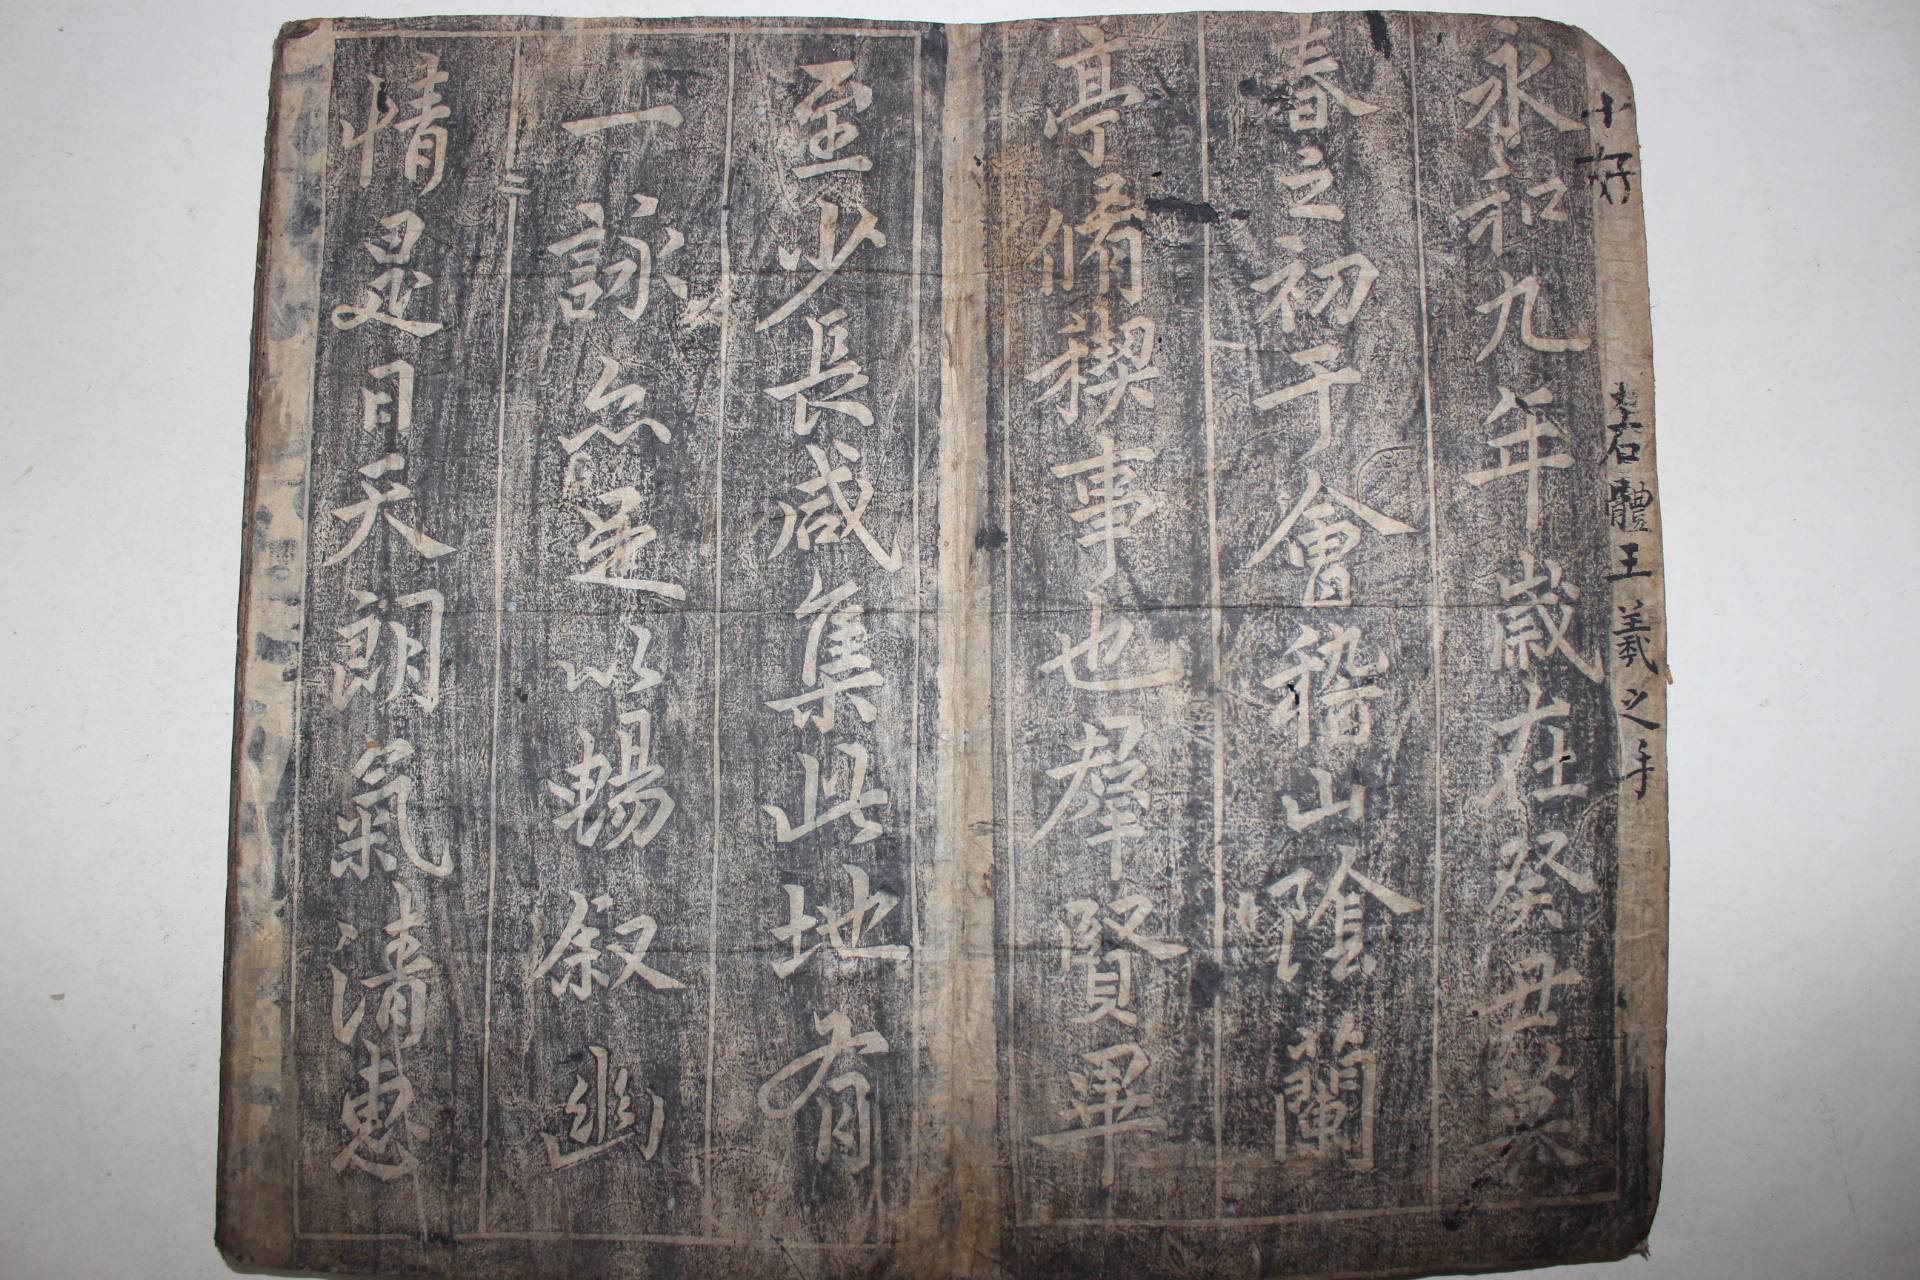 永和九年歲在癸丑暮
春之初于會稽山陰蘭
亭脩稧事也羣賢畢
至少長咸集此地有
一詠亦足以暢敘幽
情是日天朗氣清惠
右體王羲之手